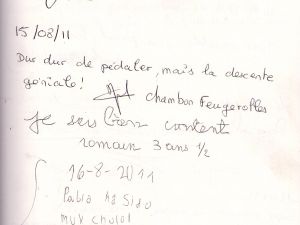 15/08/11
Dur dur de pédaler, mais la descente
géniale! Chambon Feugerolles
Je suis bien content
romain 3 ans 1/2
16-8-2011
Pablo ha Sido
muy chulo!